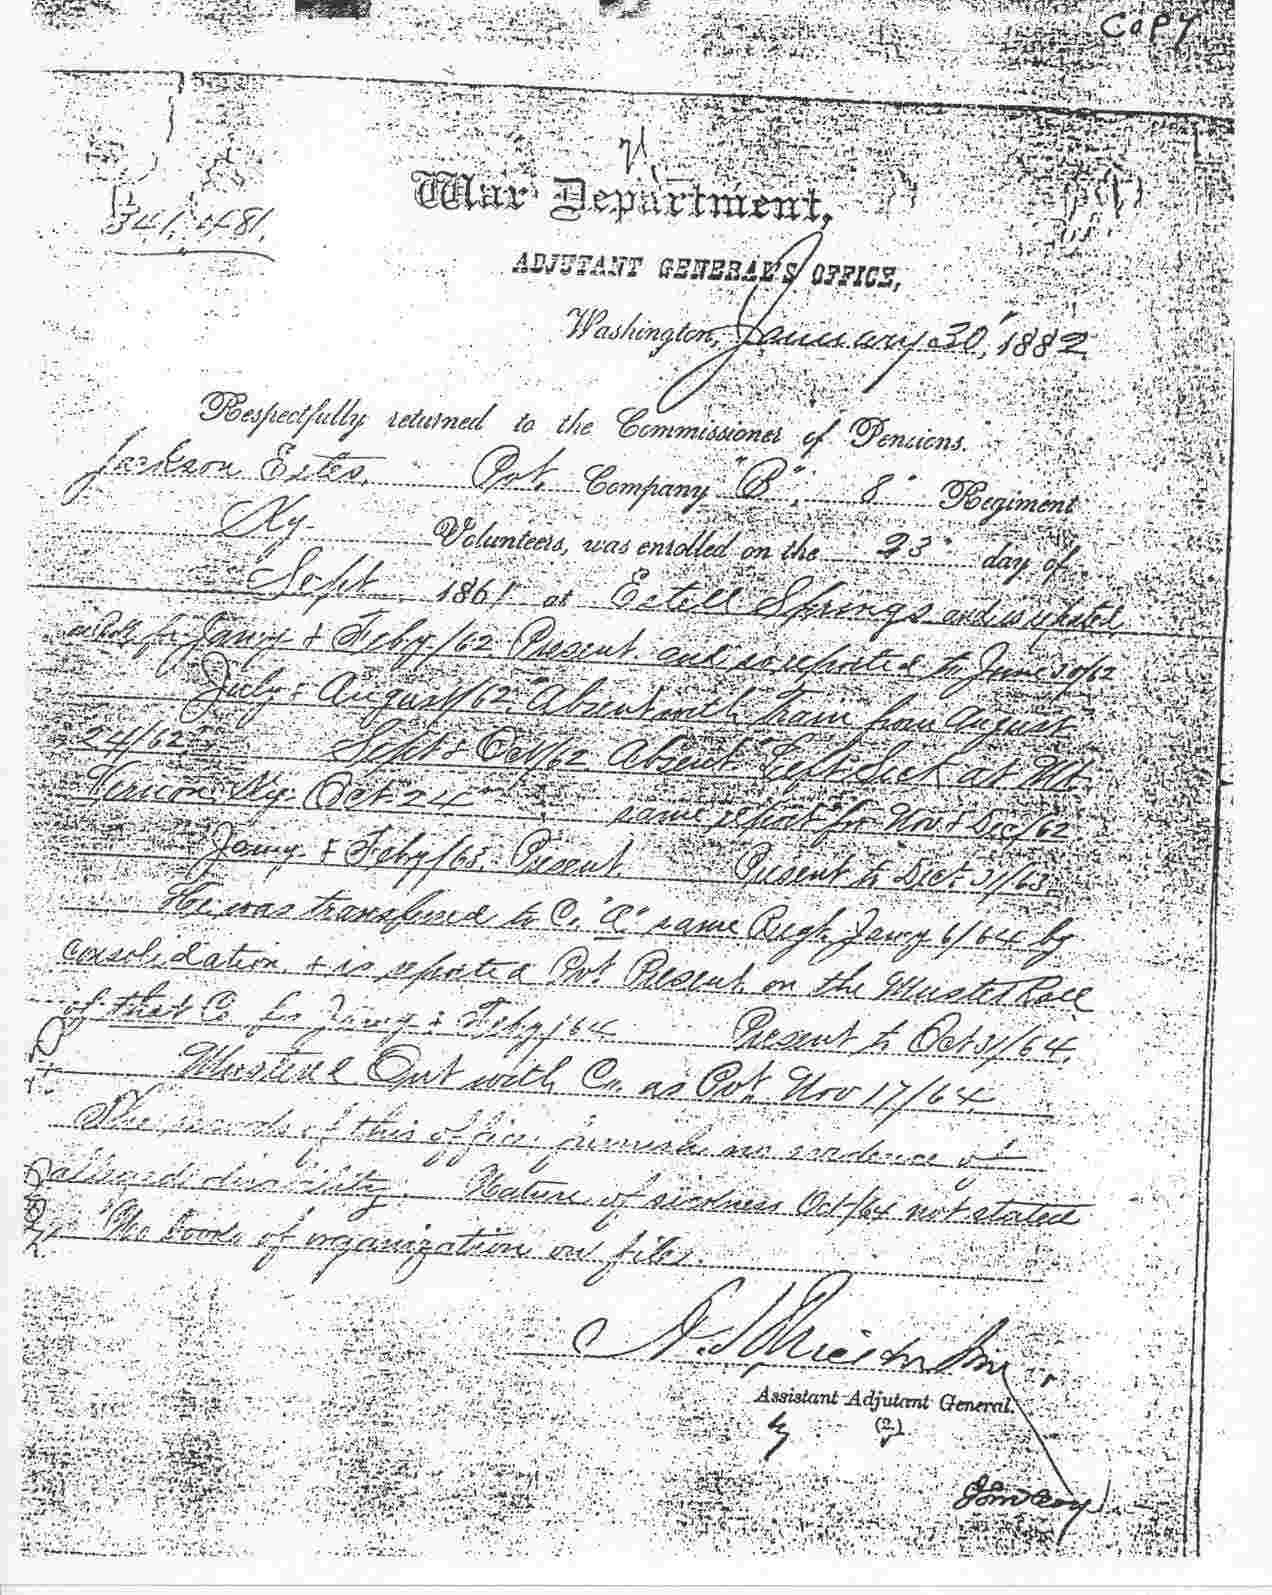 COPY
341,481.
War Department,
ADJUTANT GENERAL'S OFFICE,
Washington, January 30", 1882
Respectfully returned to the Commissioner of Pensions.
Jackson Estes, Pvt. Company "B", 8" Regiment
Ky. Volunteers, was enrolled on the 23" day of
Sept. 1861 at Estill Springs and is reported
on Roll for Jany & Feby/62 Present and so reported to June 30/62
July & August/62, "Absent with train from August
24/62" Sept & Oct/62 Absent "Left Sick at Mt.
Vernon, Ky. Oct. 24" same report for Nov & Dec/62
Jany & Feby/63. Present. Present to Dec. 31/63.
He was transferred to Co. "A" same Regt. Jany 6/64 by
consolidation & is reported Pvt. Present on the Muster Roll
of that Co for Jany & Feby/64 Present to Oct 31/64.
Mustered Out with Co. as Pvt. Nov 17/64
The records of this office furnish no evidence of
alleged disability. Nature of sickness Oct/64 not stated
No books of organization on file.
Assistant Adjutant General.
(2)